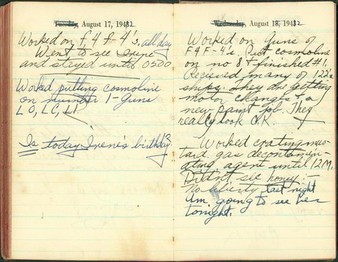 Tuesday, August 17, 1943
Worked on F4F-4's, all day
Went to see Irene
and stayed until 0500
Worked putting cosmoline
on number 1 - June
LO, LC, LI
Is today Irene's birthday?
Wednesday, August 18, 1943
Worked on June of
F4F-4's. Put cosmoline
on no 8 + finished #1.
Received many of 122's
ships. They are getting
motor changes & a
new paint job. They
really look O.K.
Worked coating mus-
tard gas decontamin-
ating agent until 12M.
Didn't see honey:-
No liberty last night
Am going to see her
tonight.